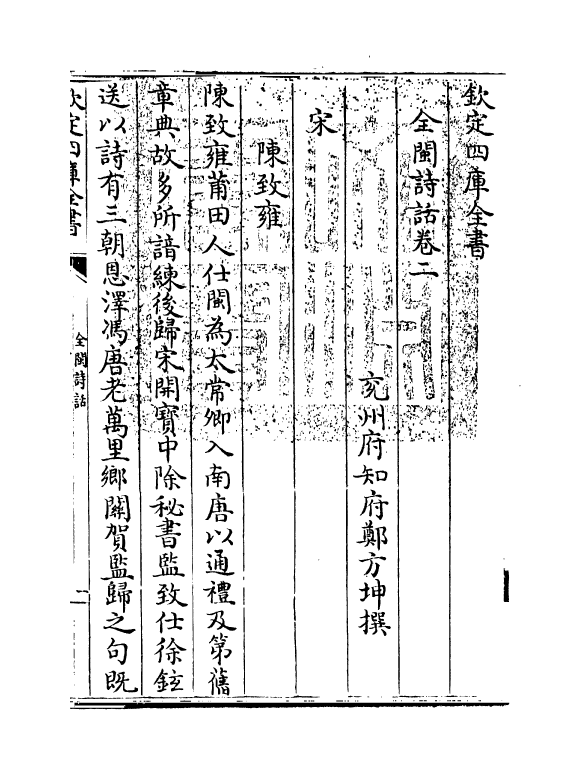 欽定四庫全書
全閩詩話卷二
兖州府知府鄭方坤撰
宋
陳致雍
陳致雍莆田人仕閩為太常卿入南唐以通禮及第舊
章典故多所諳練後歸宋開寶中除秘書監致仕徐鉉
送以詩有三朝恩澤馮唐老萬里鄉關賀監歸之句既
欽定四庫全書
全閩詩話
二